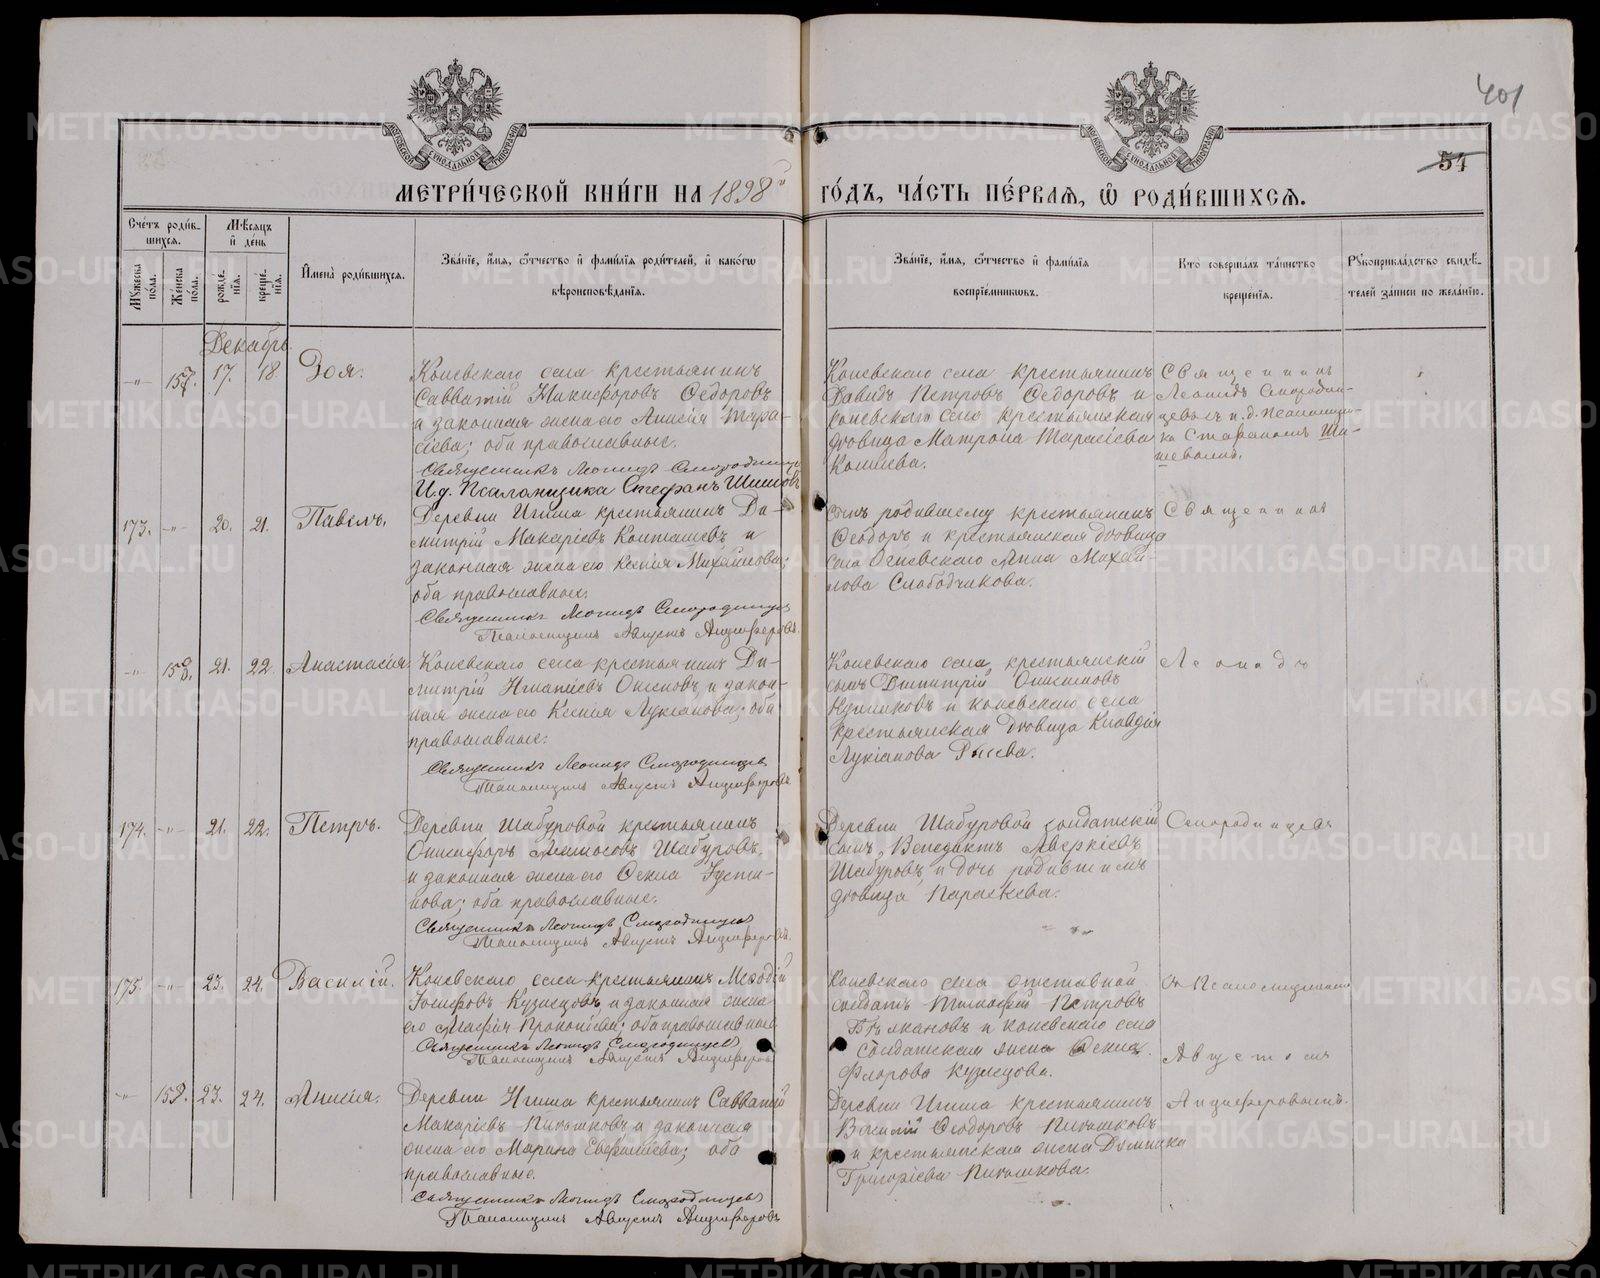 401
54
МЕТРИ́ЧЕСКОЙ КНИ́ГИ НА 1898й ГО́ДЪ, ЧА́СТЬ ПЕ́РВАЯ, Ѽ РОДИ́ВШИХСЯ.
Сче́тъ роди́в-
шихся.
Мѣсяцъ
и҆ де́нь
Мꙋ́жеска по́ла.
Же́нска по́ла.
рожде́нїя.
креще́нїя.
И҆мена̀ роди́вшихся.
Зва́нїе, и҆́мя, ѻ҆́тчество и҆ фами́лїя роди́телей, и҆ како́гѡ
вѣроисповѣ́данїя.
Зва́нїе, и҆́мя, ѻ҆́тчество и҆ фами́лїя
воспрїе́мниковъ.
Кто̀ соверша́лъ та́инство
креще́нїя.
Рꙋкоприкла́дство свидѣ́-
телей за́писи по жела́нїю.
Декабрь
-"- 157. 17. 18. Зоя.
Коневскаго села крестьянинъ
Савватій Никифоровъ Ѳедоровъ
и законная жена его Анисія Тара-
сіева; оба православные.
Священникъ Леонидъ Смородинцевъ
И.д. Псаломщика Стефанъ Шишевъ
Коневскаго села крестьянинъ
Давидъ Петровъ Ѳедоровъ и
коневскаго села крестьянская
дѣвица Матрона Тарасіева
Священникъ
Леонидъ Смородин-
цевъ съ и.д. псаломщи-
ка Стефаномъ Ши-
шевымъ.
173. -"- 20. 21. Павелъ.
Деревни Игиша крестьянинъ Ди-
митрій Макаріевъ и
законная жена его Ксенія Михайлова;
оба православные.
Священникъ Леонидъ Смородинцевъ
Псаломщикъ Августъ Анциферовъ.
сынъ родившему крестьянинъ
Ѳеодоръ и крестьянская дѣвица
села Огневскаго Анна Михай-
лова Слободчикова.
Священникъ
-"- 158. 21. 22. Анастасія
Коневскаго села крестьянинъ Ди-
митрій и закон-
ная жена его Ксенія Лукіанова; оба
православные.
Священникъ Леонидъ Смородинцевъ
Псаломщикъ Августъ Анциферовъ
Коневскаго села, крестьянскій
сынъ Димитрій
и коневскаго села
крестьянская дѣвица Клавдія
Лукіанова
Леонидъ
174. -"- 21. 22. Петръ.
Деревни Шабуровой крестьянинъ
Онисифоръ Шабуровъ
и законная жена его Ѳекла Іусти-
нова; оба православные.
Священникъ Леонидъ Смородинцевъ
Псаломщикъ Августъ Анциферовъ.
Деревни Шабуровой солдатскій
сынъ, Венедиктъ Аверкіевъ
Шабуровъ и дочь родившимъ
дѣвица Параскева.
Смородинцевъ
175. -"- 23. 24. Василій.
Коневскаго села крестьянинъ Меѳодій
Іосифовъ Кузнецовъ и законная жена
его Агафія Прокопіева; оба православные
Священникъ Леонидъ Смородинцевъ
Псаломщикъ Августъ Анциферовъ
Коневскаго села отставной
солдатъ Тимофей Петровъ
и коневскаго села
солдатская жена Ѳекла
Флорова Кузнецова.
съ Псаломщикомъ
Августомъ
-"- 159. 23. 24. Анисія.
Деревни Игиша крестьянинъ Савватій
Макаріевъ Пигашковъ и законная
жена его Марина Евфиміева; оба
православные.
Священникъ Леонидъ Смородинцевъ
Псаломщикъ Августъ Анциферовъ
Деревни Игиша крестьянинъ
Василій Ѳеодоровъ Пигашковъ
и крестьянская жена Домника
Григоріева Пигашкова.
Анциферовымъ.